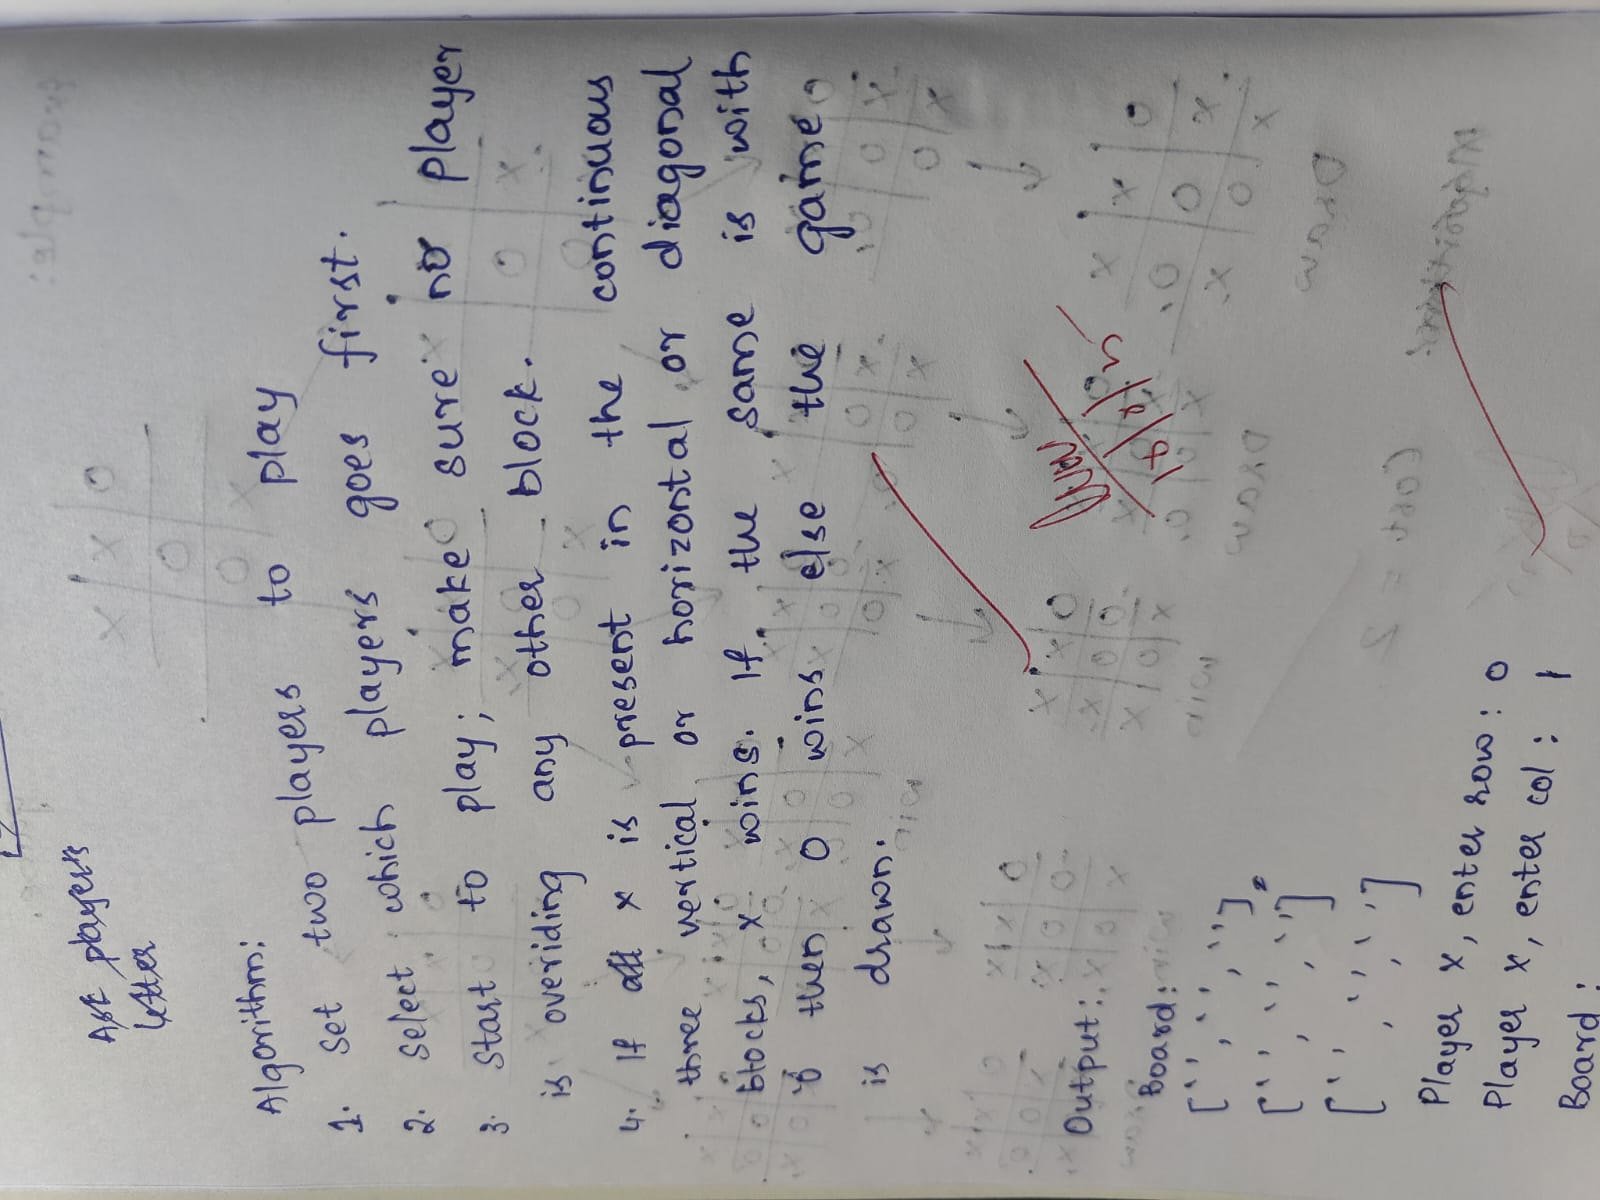 Ask players
letter
Algorithm:
1. Set two players to play
2. select which players goes first.
3. Start to play; make sure no player
is overiding any other block.
4. If all x is present in the continuous
three vertical or horizontal or diagonal
blocks, x wins. If the same is with
0 then 0 wins else the game
is drawn.
Output:
Board:
[' ', ' ', ' '],
[' ', ' ', ' ']
[' ', ' ', ' ']
Player x, enter row: 0
Player x, enter col: 1
Board: